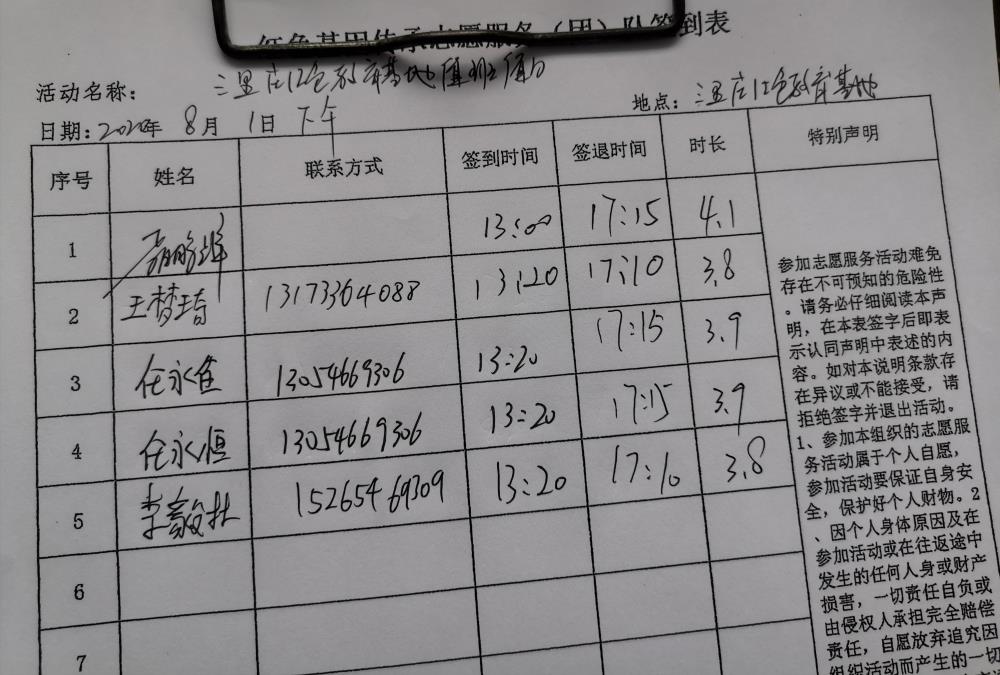 红色基因传承志愿服务（团）队签到表
活动名称： 三里庄红色教育基地值班值日
地点：三里庄红色教育基地
日期：2020年 8月 1日 下午
序号 姓名 联系方式 签到时间 签退时间 时长 特别声明
1 13:00 17:15 4.1
2 王梦琦 13173364088 13:20 17:10 3.8
3 任永佳 13054669306 13:20 17:15 3.9
4 任永恒 13054669306 13:20 17:15 3.9
5 李毅杜 15265469309 13:20 17:10 3.8
6
7
参加志愿服务活动难免
存在不可预知的危险性
。请务必仔细阅读本声
明，在本表签字后即表
示认同声明中表述的内
容。如对本说明条款存
在异议或不能接受，请
拒绝签字并退出活动。
1、参加本组织的志愿服
务活动属于个人自愿，
参加活动要保证自身安
全，保护好个人财物。2
、因个人身体原因及在
参加活动或在往返途中
发生的任何人身或财产
损害，一切责任自负或
由侵权人承担完全赔偿
责任，自愿放弃追究因
组织活动而产生的一切